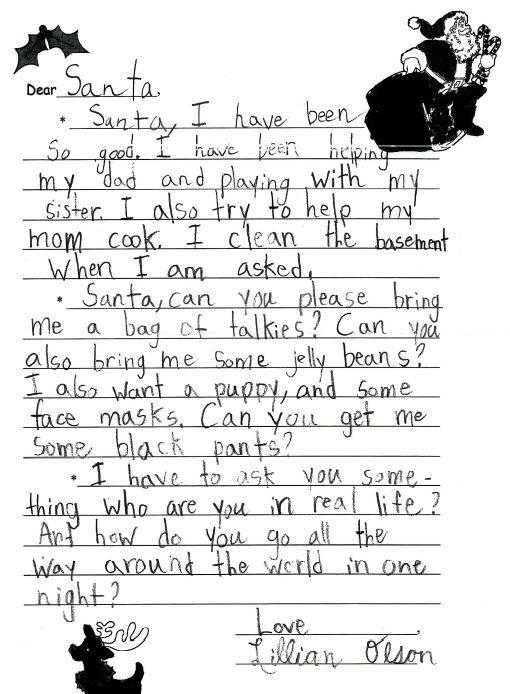 Dear Santa,
* Santa, I have been
So good. I have been helping
my dad and playing with my
sister. I also try to help my
mom cook. I clean the basement
When I am asked.
* Santa, can you please bring
me a bag of talkies? Can you
also bring me some jelly beans?
I also want a puppy, and some
face masks. Can you get me
some black pants?
* I have to ask you some-
thing who are you in real life?
Ant how do you go all the
way around the world in one
night?
Love,
Lillian Olson